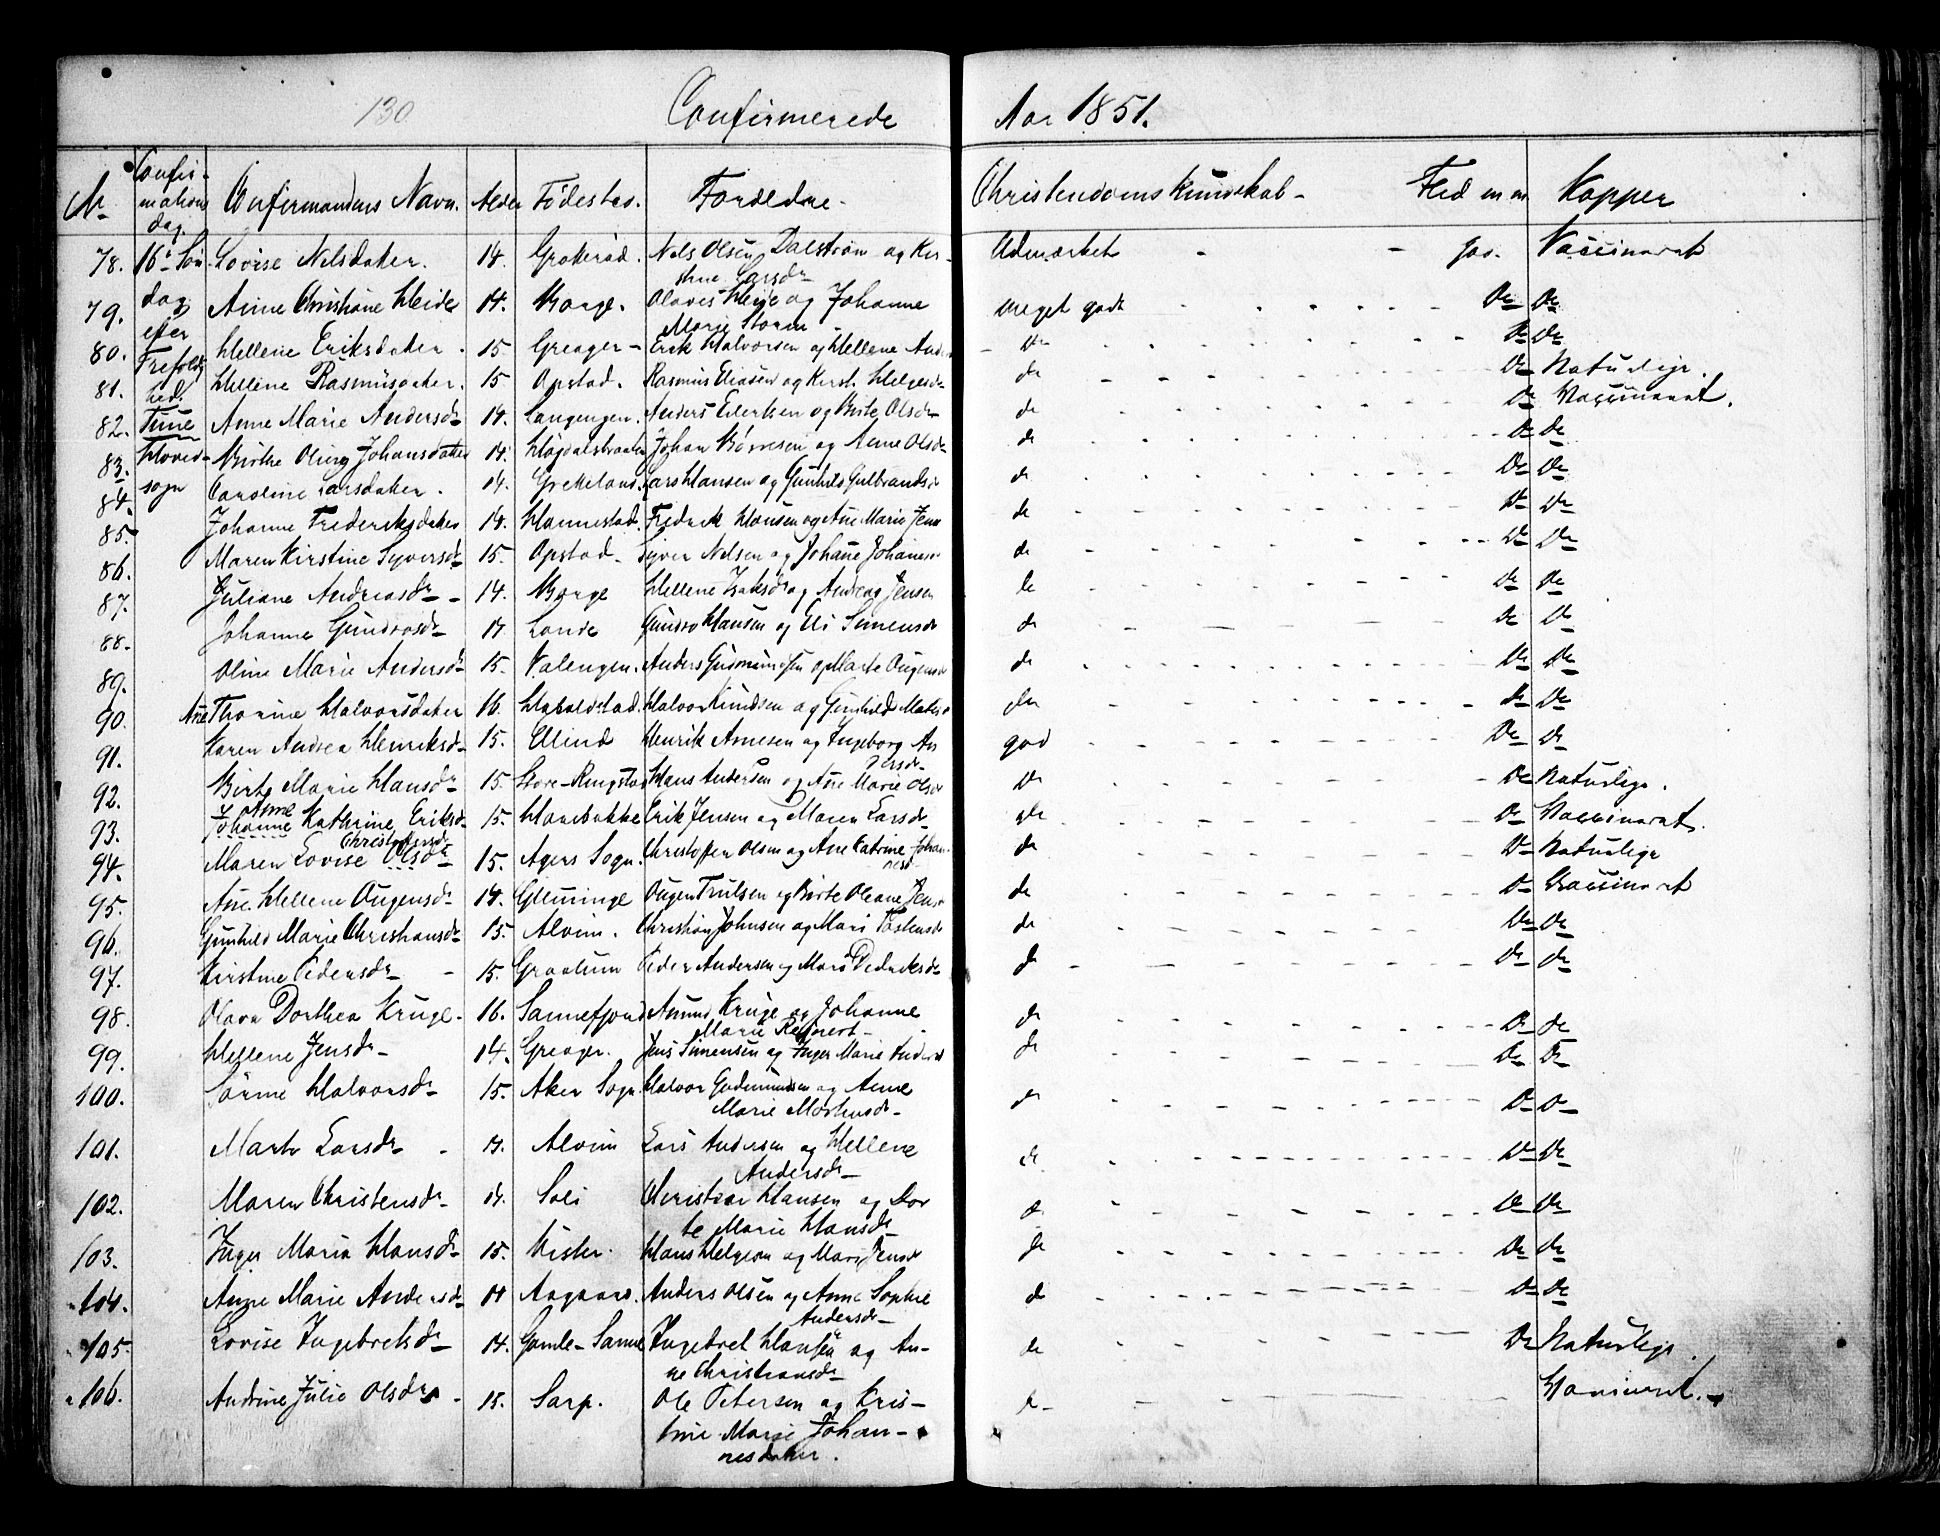 130 Confirmerede Aar 1851.
No Confirmations dag. Confirmandens Navn. Alder Fødested. Forældre. Christendoms Kundskab Flid Kopper
78. 16de Søn- Lovise Nilsdatter. 14. Grøkerød. Nels Olsen Dalstrøm og Kir- Udmærket - - goo. Vaccinerat
stine Larsdr
79. dag Anne Christiane Heide 14. Borge. Olaves Heide og Johanne meget godt Do Do
efter Marie Storm
80. Trefoldig Hellene Eriksdatter. 15. Greager Erik Halvorsen og Hellene Anders Do Do Do
81. hed. Hellene Rasmusdatter. 15 Opstad. Rasmus Eliasen og Kirst. Helgesdr do Do Naturlige.
82. Tune Anne Marie Andersdr 14. Langengen. Anders Evertsen og Birte Olsdr do Do Vaccinerat.
83. Hoved- Birthe Oline Johansdatter 14. Høgdalsbraaten Johan Børresen og Anne Olsdr do Do Do
84. sogn Caroline Larsdatter. 14. Grekeland. Lars Hansen og Gunhild Gulbrandsdr do Do Do
85. Johanne Frederiksdatter 14. Hannestad. Fredrik Hansen og Ane Marie Jens do Do Do
86. Maren Kirstine Syversdr 15. Opstad. Syver Nelsen og Johane Johannes do Do Do
87. Juliane Andreasdr 14. Borge Hellene Isaksdr og Andreas Jensen do Do Do
88. Johanne Gundrosdr 14 Lande Gundro Hansen og Eli Simensdr do Do Do
89. Oline Marie Andersdr 15. Valengen. Anders Gudmundsen og Marte Ougensdr do Do Do
90. Ane Thorine Halvorsdatter 16. Haraldstad. Halvor Knudsen og Gunhild Mats do Do Do
91. Karen Andrea Henriksdr 15. Ellind Henrik Arnesen og Ingeborg An god Do Do
dersdr
92. Birte Marie Hansdr 15. Store-Ringstad Hans Andersen og Ane Marie Olsdr Do Do Naturlige.
Anne
93. Johanne Kathrine Eriksdr 15. Hanebakke Erik Jensen og Maren Larsdr do Do Vaccinerat.
Christophersdr
94. Maren Lovise Olsdr 15. Agers Sogn. Christoffer Olsen og Ane Catrine Johan- do Do Naturlige
nesd
95. Ane Hellene Ougensdr 14. Glemminge Ougen Trulsen og Birte Oleane Jens do Do Vaccinerat
96. Gunhild Marie Christiansdr 15. Alvim. Christian Johnsen og Mari Tostensdr do Do Do
97. Kirstine Pedersdr 15. Graalum Peder Andersen og Mari Dedriksdr do Do do
98. Olava Dorthea Kruge. 16. Sannefjord Amund Kruge og Johanne do Do do
Marie Regnert
99. Hellene Jensdr 14. Greager. Jens Simensen og Inger Marie Anders do Do Do
100. Sørine Halvorsdr 15. Aker Sogn. Halvor Gudmundsen og Anne do Do Do
Marie Mortensdr
101. Marte Larsdr 14. Alvim Lars Andersen og Hellene do. Do Do
Andersdr
102. Maren Christensdr 14. Soli Christian Hansen og Dor do. Do Do
te Marie Hansdr
103. Inger Maria Hansdr 15. Vister. Hans Helgesen og Mari Jensdr do Do Do
104. Anne Marie Andersdr 14 Aagaard. Anders Olsen og Anne Sophie do Do Do
Andersdr
105. Lovise Ingebretsdr 14. Gamle-Sanne Ingebret Hansen og An- do Do Naturlige.
ne Christiansdr
106. Andrine Julie Olsdr. 15. Sarp. Ole Petersen og Kris- do Vaccinerat.
tine Marie Johan-
nesdatter.